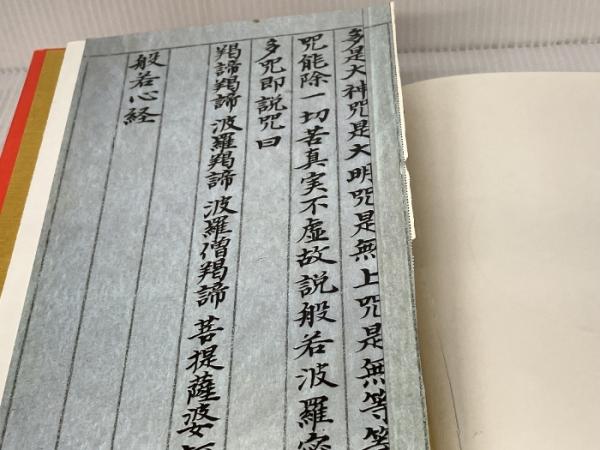 多是大神咒是大明咒是無上咒是無等等
咒能除一切苦真実不虚故説般若波羅蜜
多咒即説咒曰
羯諦羯諦波羅羯諦波羅僧羯諦菩提薩婆
般若心経